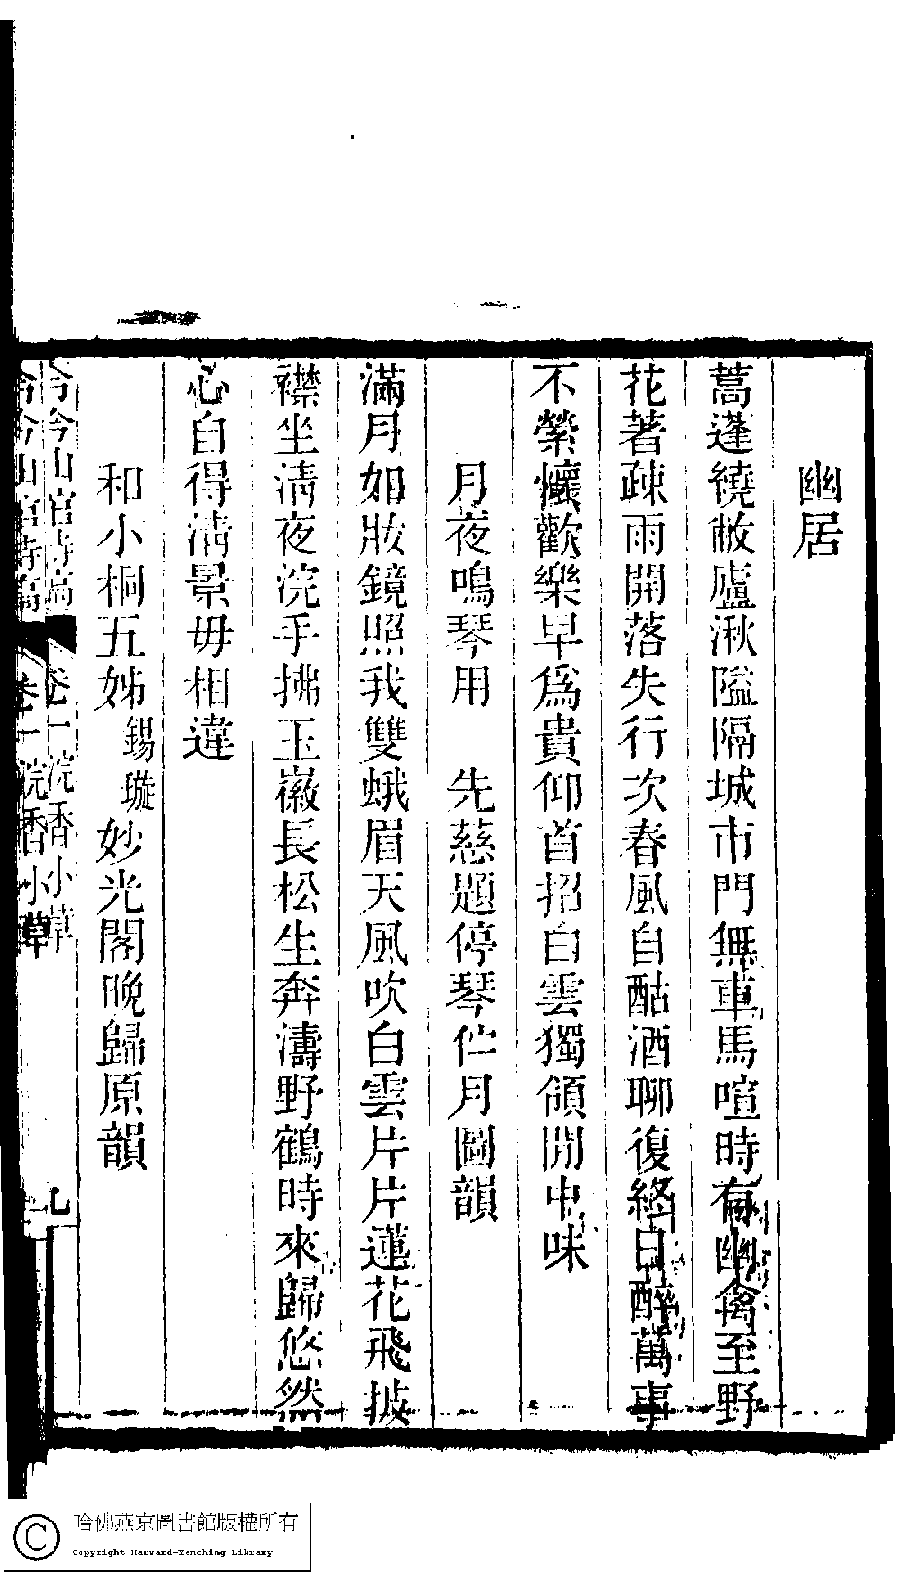 幽居
蒿蓬繞敝廬湫隘隔城市門無車馬喧時有幽禽至野
花著疎雨開落失行次春風自酤酒聊復終日醉萬事
不縈懷歡樂早爲貴仰首招白雲獨領閒中味
月夜鳴琴用　先慈題停琴伫月圖韻
滿月如妝鏡照我雙蛾眉天風吹白雲片片蓮花飛披
襟坐清夜浣手拂玉徽長松生奔濤野鶴時來歸悠然
心自得清景毋相違
和小桐五姊錫璇妙光閣晚歸原韻
泠泠山館詩稿　卷一浣香小草　九
哈佛燕京圖書館版權所有
Copyright Harvard-Yenching Library